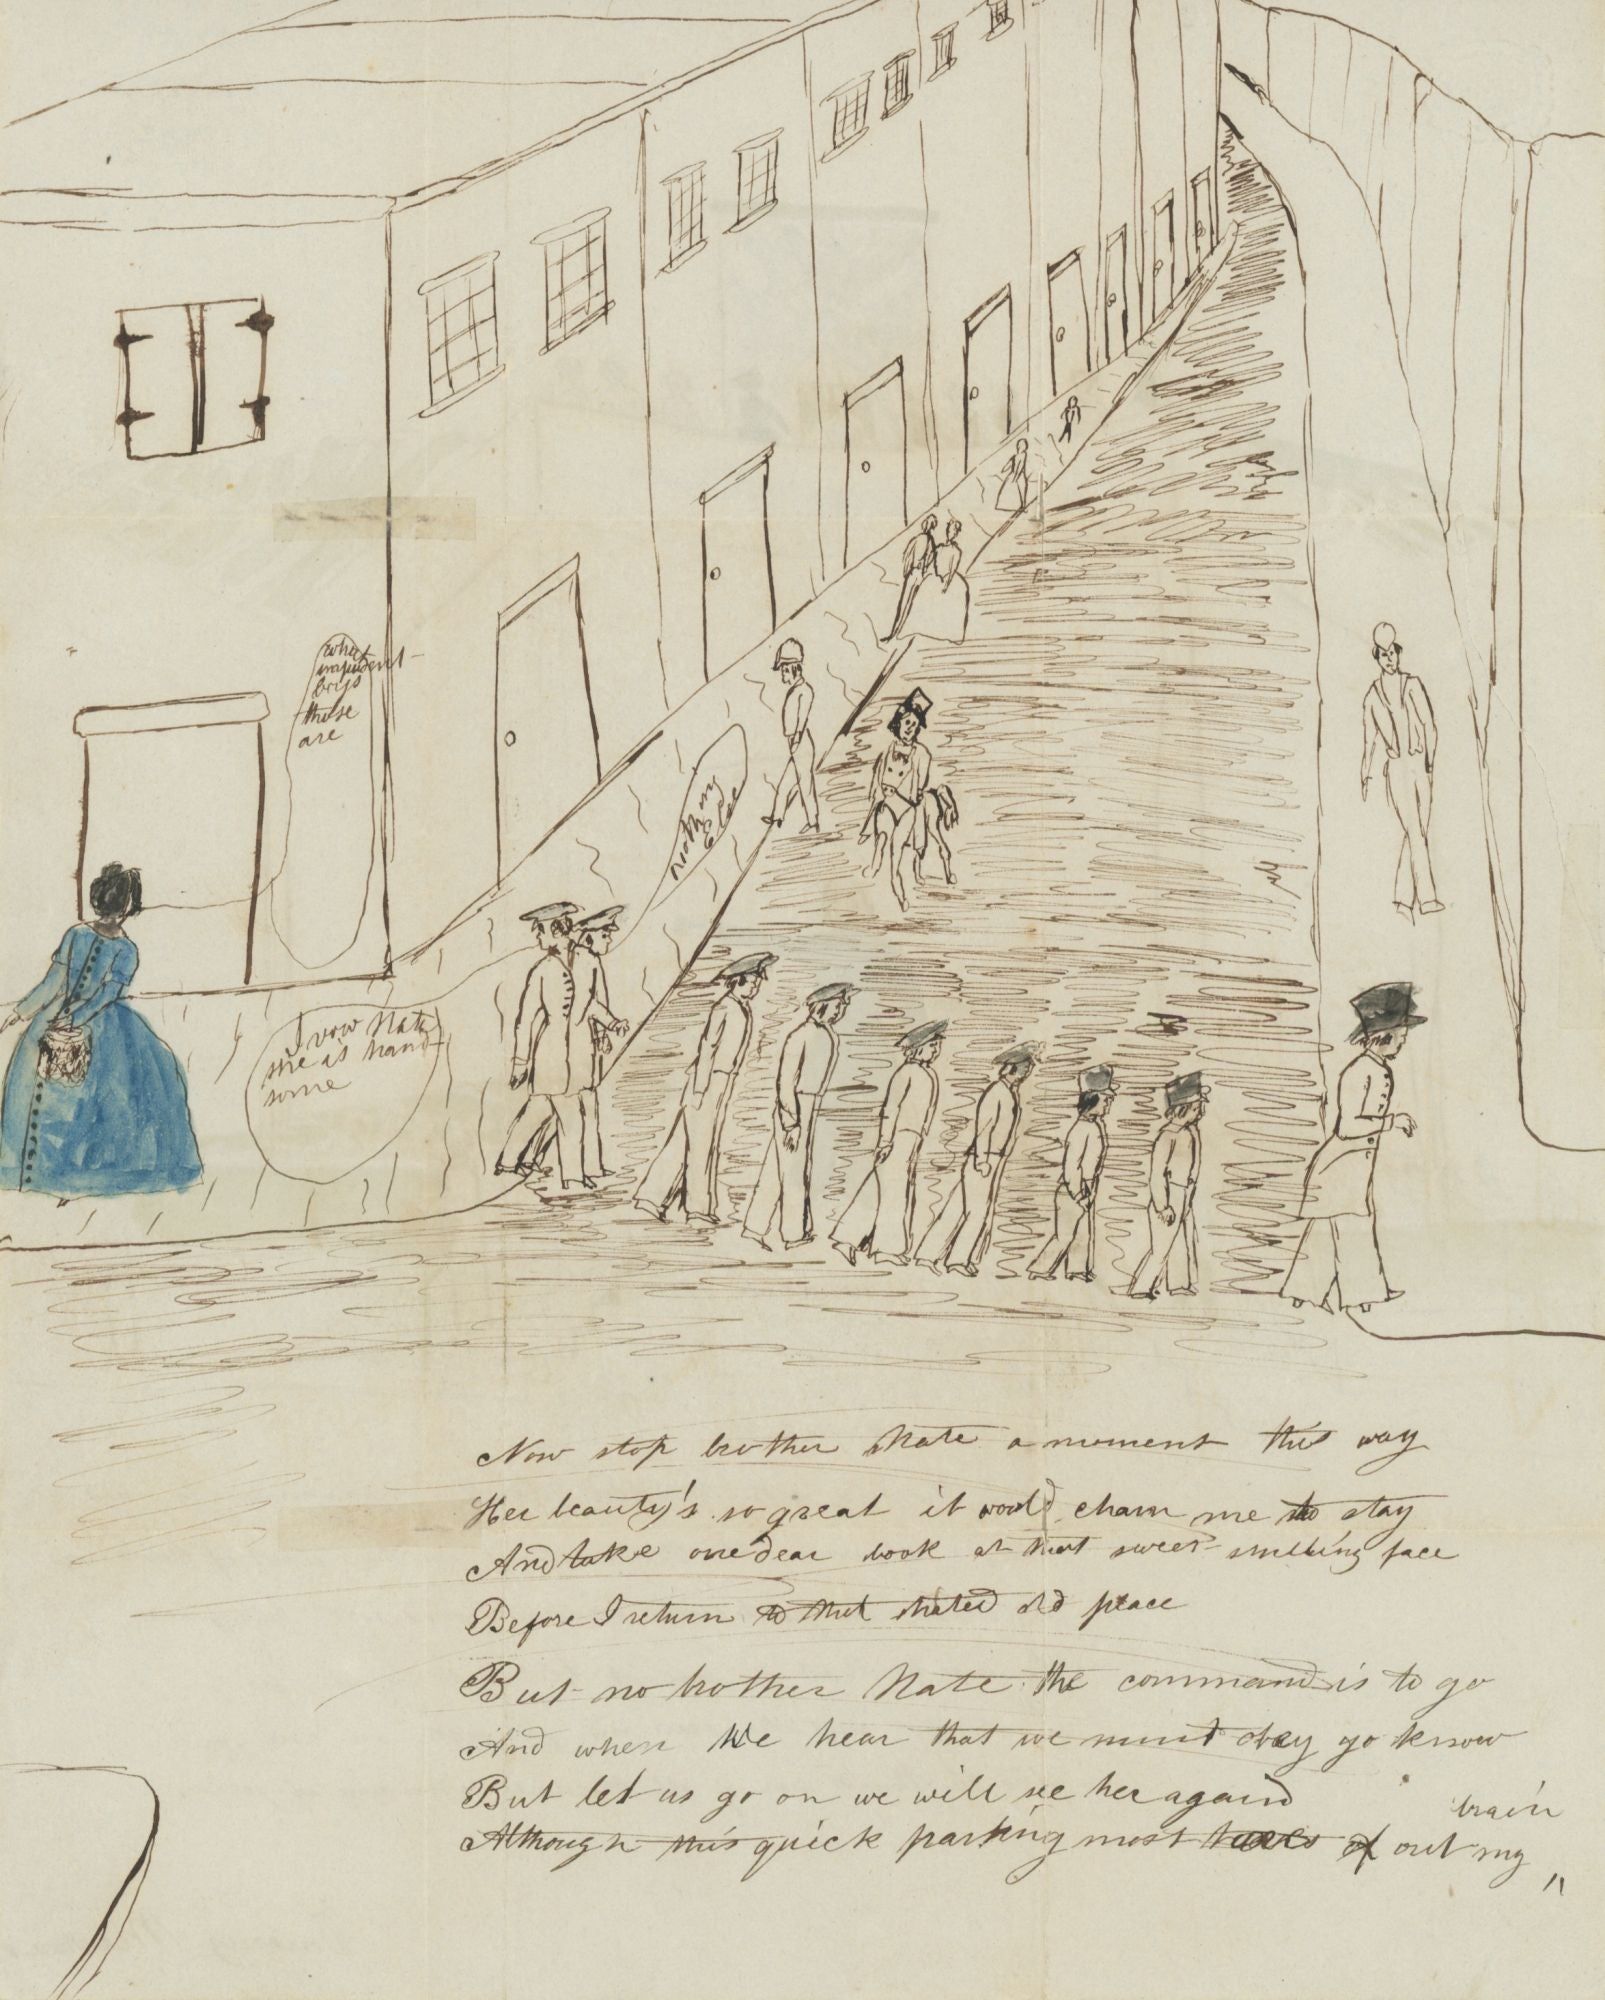 what
impudent
boys
these
are
nothing
Else
I vow Nate
she is hand-
some
Now stop brother Nate a moment this way
Her beauty's so great it would charm me to stay
And take one dear look at that sweet smelling face
Before I return to that hated old place
But no brother Nate the command is to go
And when we hear that we must obey you know
But let us go on we will see her again
Although this quick parting most out my
brain "